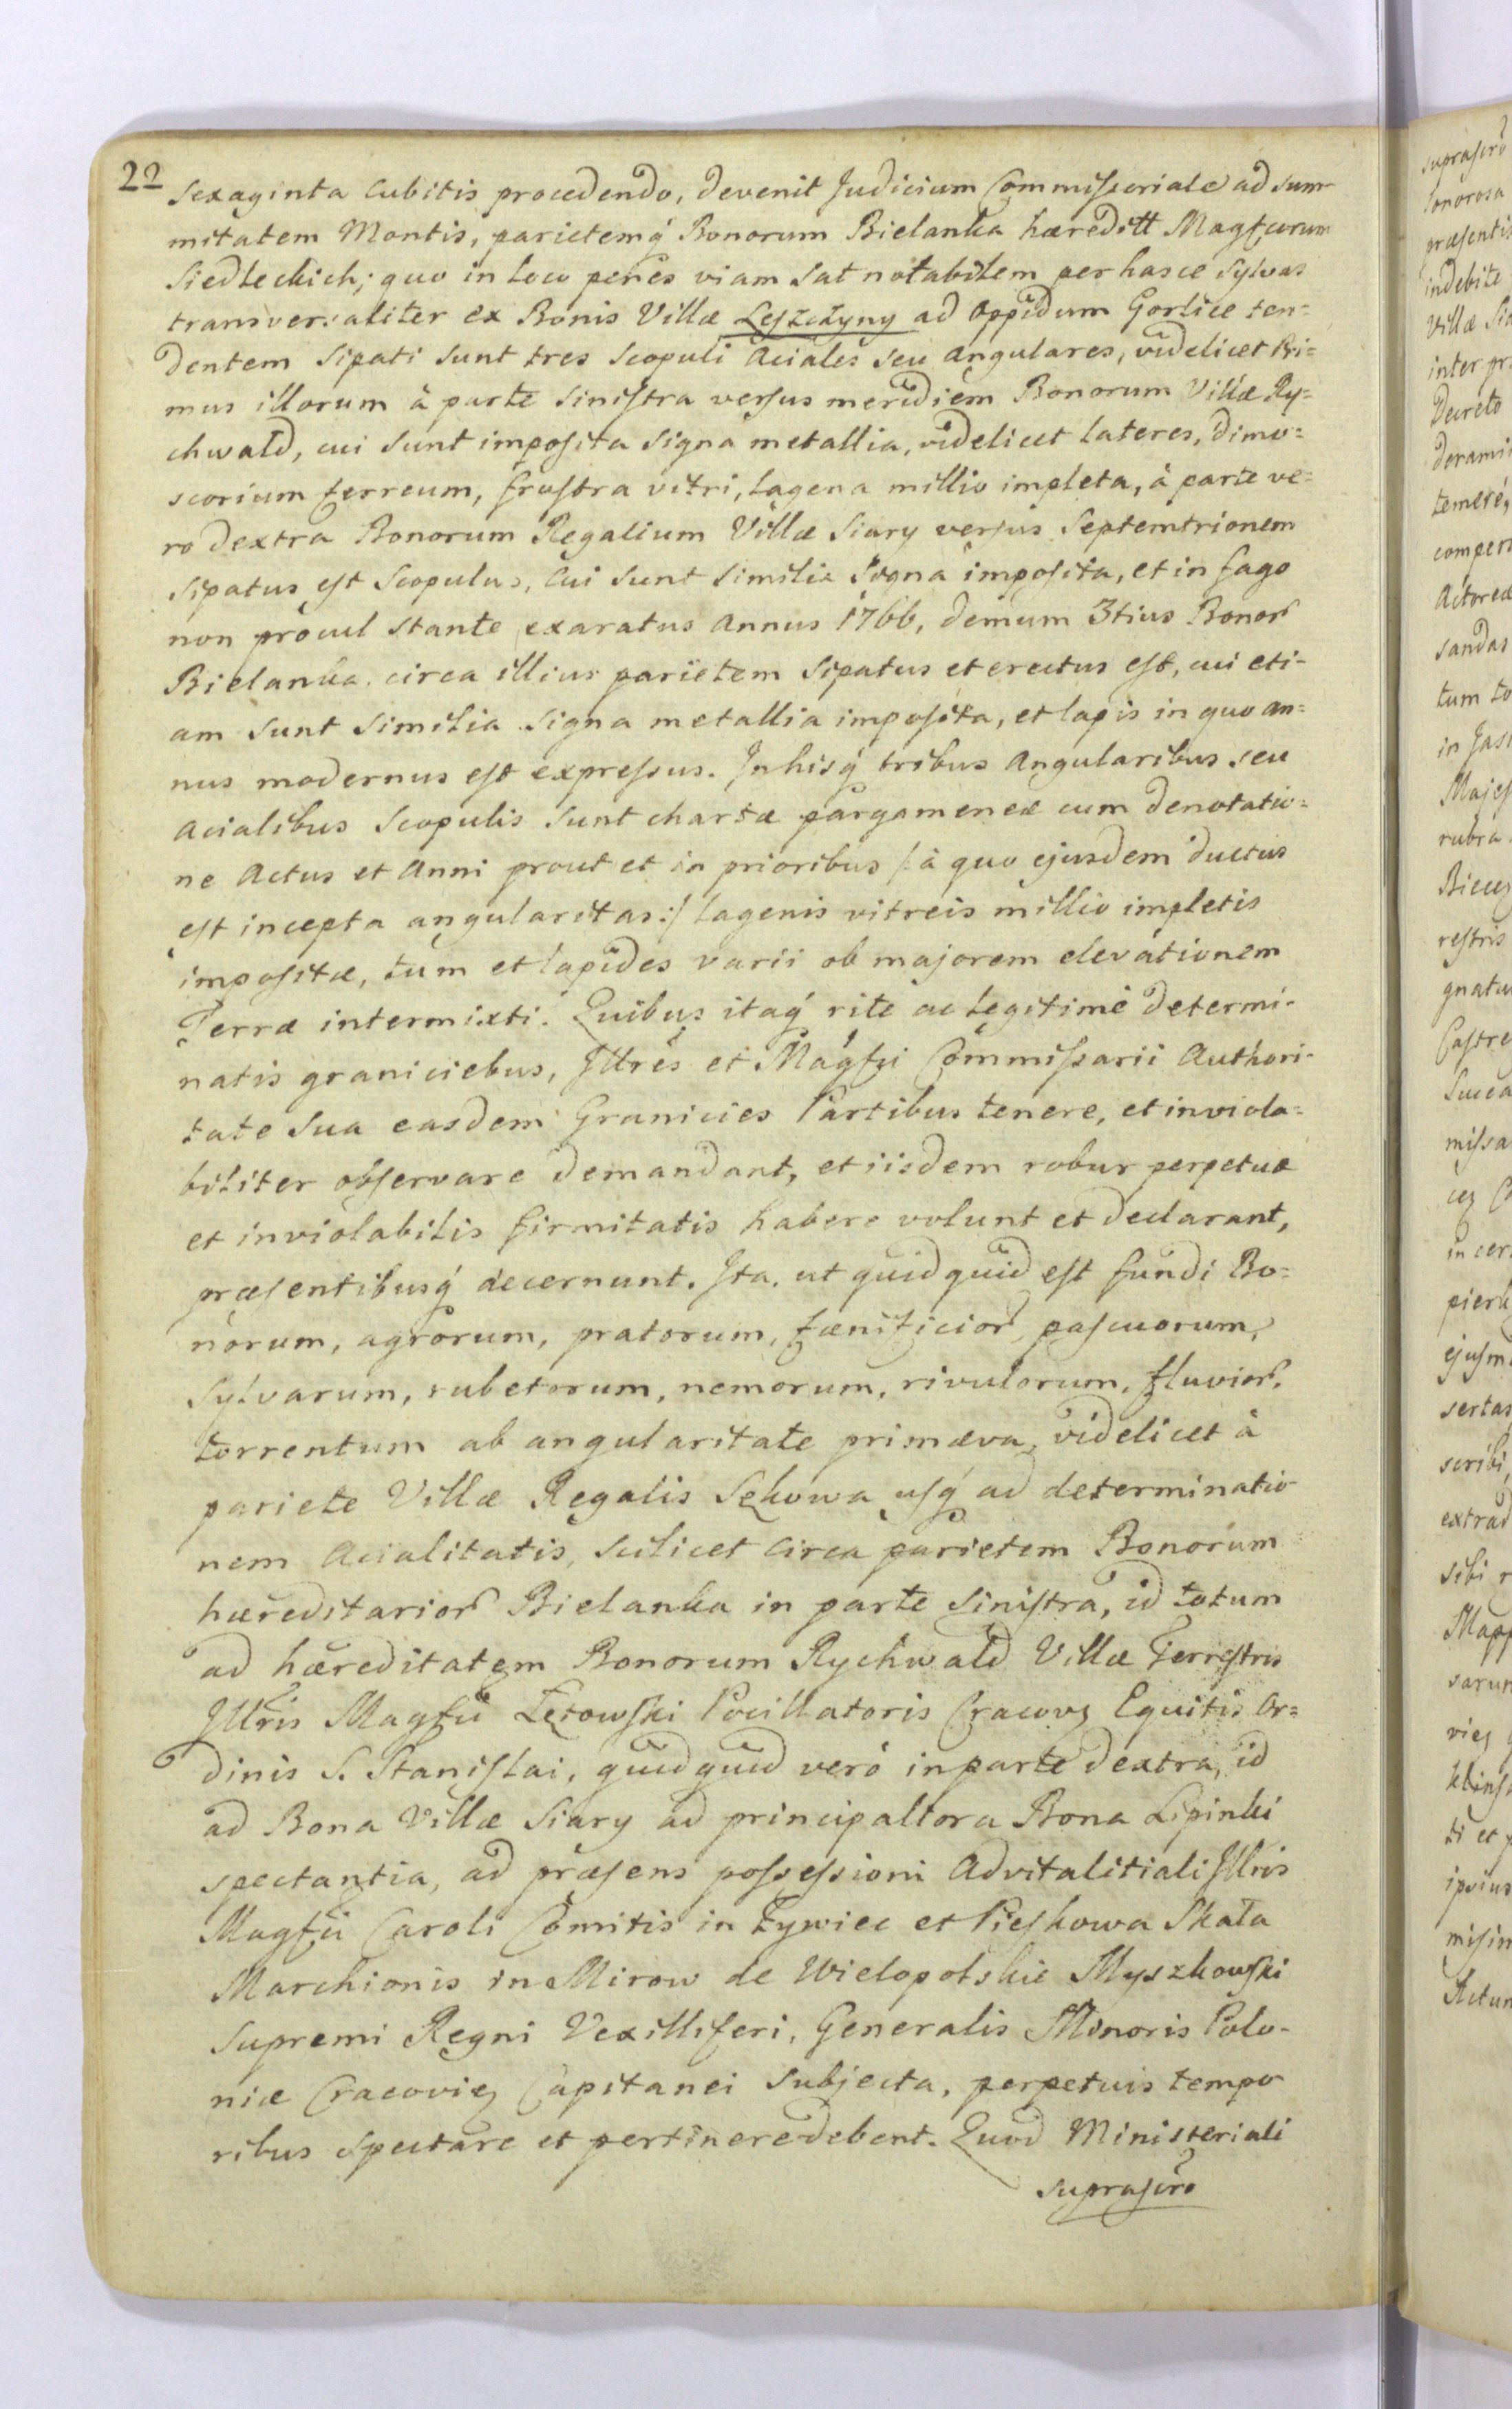 22
sexaginta cubitis procedendo, devenit Judicium Commissoriale ad sum-
mitatem Montis, parietemq́ Bonorum Bielanka hæreditt Magfcorum
Siedleckich; quo in loco penes viam sat notabilem per hasce sylvas
transversaliter ex Bonis Villæ Leszczyny ad Oppidum Gorlice ten=
dentem sipati sunt tres scopuli Aciales seu angulares, videlicet Pri=
mus illorum à parte sinistra versus meridiem Bonorum Villæ Ry=
chwald, cui sunt imposita signa metallia, videlicet lateres, dimo=
scorium ferreum, frustra vitri, lagena millio impleta, à parte ve=
ro dextra Bonorum Regalium Villæ Siary versus Septemtrionem
sipatus est Scopulus, cui sunt similia signa imposita, et in fago
non procul stante exaratus Annus 1766, demum 3tius Bonor
Bielanka circa illius parietem sipatus et erectus est, cui eti-
am sunt similia signa metallia imposita, et lapis in quo an=
nus modernus est expressus. In hisq́ tribus Angularibus seu
Acialibus Scopulis sunt chartæ pargameneæ cum denotatio=
ne Actus et Anni prout et in prioribus /: à quo ejusdem ductus
est incepta angularitas :/ lagenis vitreis millio impletis
impositæ, tum et lapides varii ob majorem elevationem
Terræ intermixti. Quibus itaq́ ritè ac legitimè determi-
natis graniciebus, Illres et Magfci Commissarii Authori-
tate sua easdem Granicies Partibus tenere, et inviola=
biliter observare demandant, et iisdem robur perpetuæ
et inviolabilis firmitatis habere volunt et declarant,
præsentibusq́ decernunt. Ita, ut quidquid est fundi Bo=
norum, agrorum, pratorum, fænificior, pascuorum,
sylvarum, rubetorum, nemorum, rivulorum, fluvior,
torrentum ab angularitate primæva, videlicet à
pariete Villæ Regalis Sękowa usq́ ad determinatio-
nem Acialitatis, scilicet circa parietem Bonorum
hæreditarior Bielanka in parte sinistra, id totum
ad hæreditatem Bonorum Rychwald Villæ Terrestris
Illris Magfci Łętowski Pocillatoris Cracovę Equitis Or=
dinis S. Stanislai, quidquid verò in parte dextra, id
ad Bona Villæ Siary ad principaliora Bona Lipinki
spectantia, ad præsens possessioni Advitalitiali Illris
Magfci Caroli Comitis in Zywiec et Pieskowa Skała
Marchionis in Mirow de Wielopolskie Myszkowski
Supremi Regni Vexilliferi, Generalis Minoris Polo-
niæ Cracovię Capitanei subjecta, perpetuis tempo-
ribus spectare et pertinere debent. Quod Ministeriali
suprascro